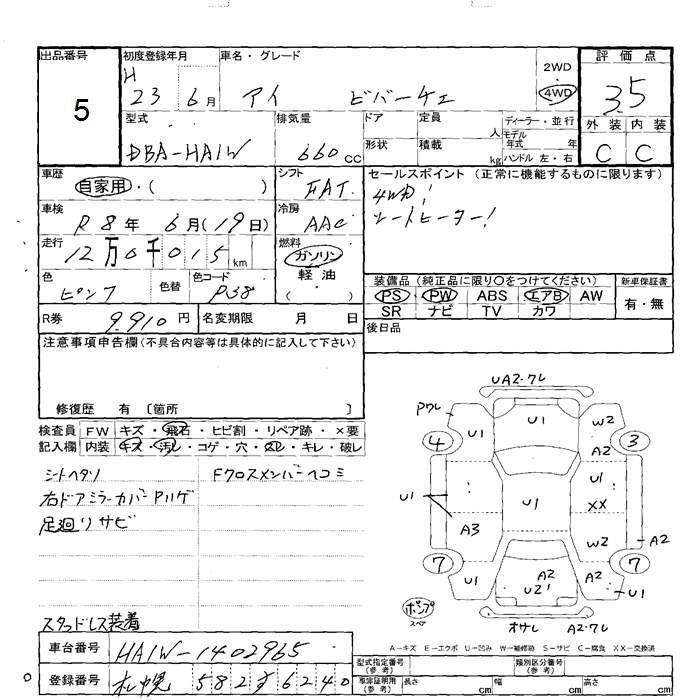 出品番号 5
初度登録年月 H 23 6月
車名・グレード アイ ビバーチェ
2WD 4WD
評価点 3.5
外装 内装
C C
型式 DBA-HA1W
排気量 660cc
ドア 定員 人
形状 積載 kg
ディーラー・並行
モデル年式 年
ハンドル 左・右
車歴 自家用・( )
シフト FAT
セールスポイント(正常に機能するものに限ります)
4WD!
シートヒーター!
車検 R8年 6月(19日)
冷房 AAC
走行 12万0千015km
燃料 ガソリン
軽油
( )
色 ピンク 色替 色コード P38
装備品(純正品に限り○をつけてください)
PS PW ABS エアB AW
SR ナビ TV カワ
新車保証書
有・無
R券 9,910円 名変期限 月 日
後日品
注意事項申告欄(不具合内容等は具体的に記入して下さい)
修復歴 有 〔箇所 〕
検査員記入欄
FW キズ・飛石・ヒビ割・リペア跡・×要
内装 キズ・汚レ・コゲ・穴・スレ・キレ・破レ
シートヘタリ Fクロスメンバーヘコミ
右ドアミラーカバーPハゲ
足廻りサビ
スタッドレス装着
UA2・ワレ
Pワレ
U1 U1 W2
4 A2 3
U1 U1 U1 XX
A3 W2 A2
7 7
U1 A2 U2 A2 U1
ポンプ
スペア
オサレ A2・ワレ
A-キズ E-エクボ U-凹み W-補修跡 S-サビ C-腐食 XX-交換済
車台番号 HA1W-1402965
登録番号 札幌 582す6240
型式指定番号(参考) 類別区分番号(参考)
車庫証明用(参考) 長さ cm 幅 cm 高さ cm